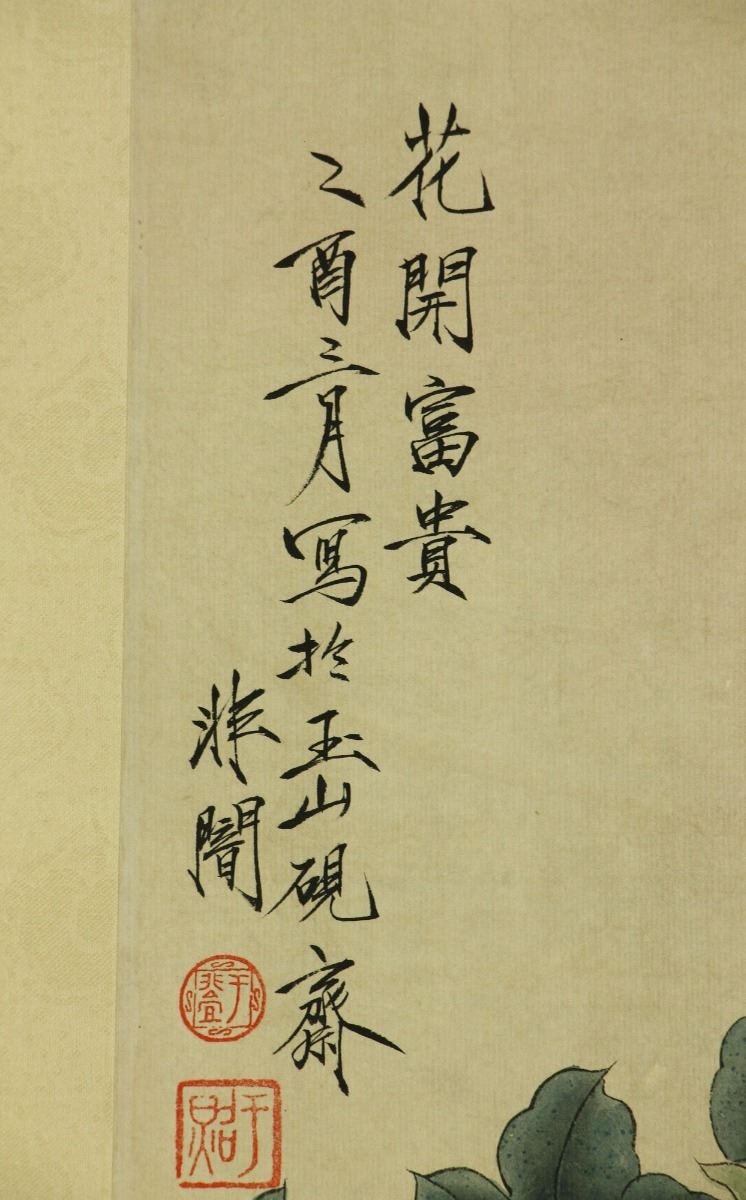 花開富貴
乙酉三月寫於玉山硯齋
非闇
于照